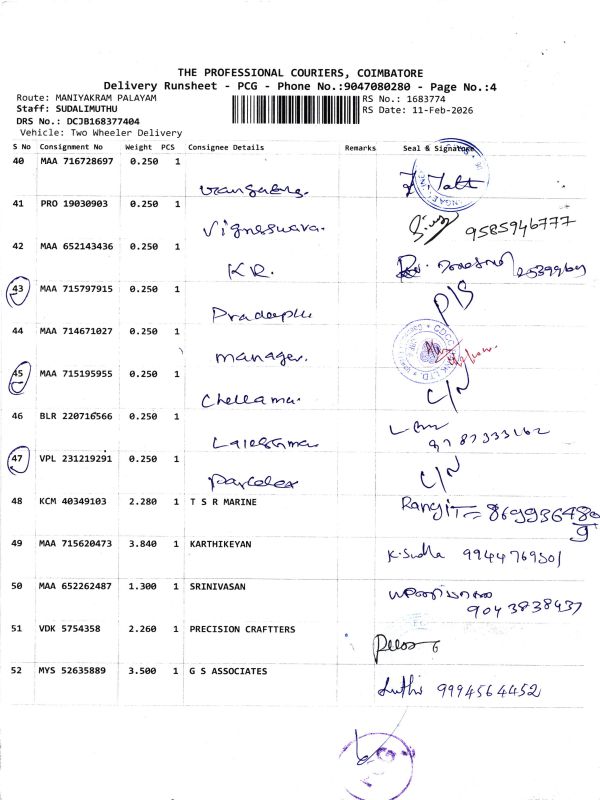 THE PROFESSIONAL COURIERS, COIMBATORE
Delivery Runsheet - PCG - Phone No.:9047080280 - Page No.:4
Route: MANIYAKRAM PALAYAM RS No.: 1683774
Staff: SUDALIMUTHU RS Date: 11-Feb-2026
DRS No.: DCJB168377404
Vehicle: Two Wheeler Delivery
S No Consignment No Weight PCS Consignee Details Remarks Seal & Signature
40 MAA 716728697 0.250 1
41 PRO 19030903 0.250 1
Vigneswara. 9585946777
42 MAA 652143436 0.250 1
KR.
43 MAA 715797915 0.250 1
Pradeep P/S
44 MAA 714671027 0.250 1
manager.
45 MAA 715195955 0.250 1
Chellama. C/N
46 BLR 220716566 0.250 1
47 VPL 231219291 0.250 1
C/N
48 KCM 40349103 2.280 1 T S R MARINE
Rangit = 8699364809
49 MAA 715620473 3.840 1 KARTHIKEYAN
K.Sudha 9944769501
50 MAA 652262487 1.300 1 SRINIVASAN
9043838437
51 VDK 5754358 2.260 1 PRECISION CRAFTTERS
52 MYS 52635889 3.500 1 G S ASSOCIATES
9994564452